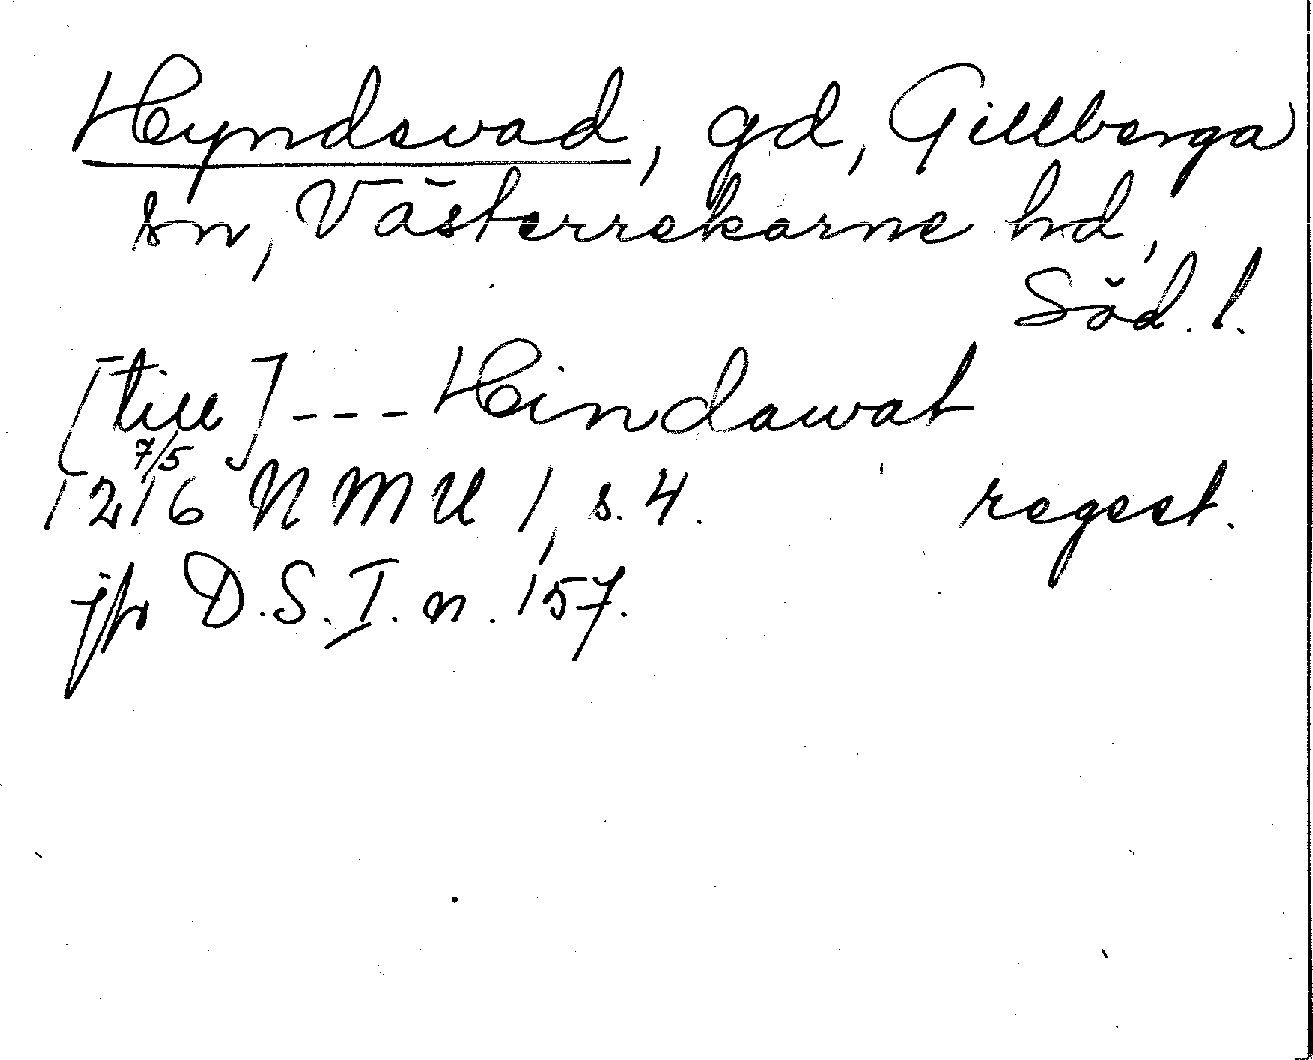 Hyndsvad, gd, Gillberga
sn, Västerrekarne hd,
Söd. l.
[till] --- Hindawat
7/5
1216 NMU 1, s. 4. regest.
jfr D.S. I. n. 157.